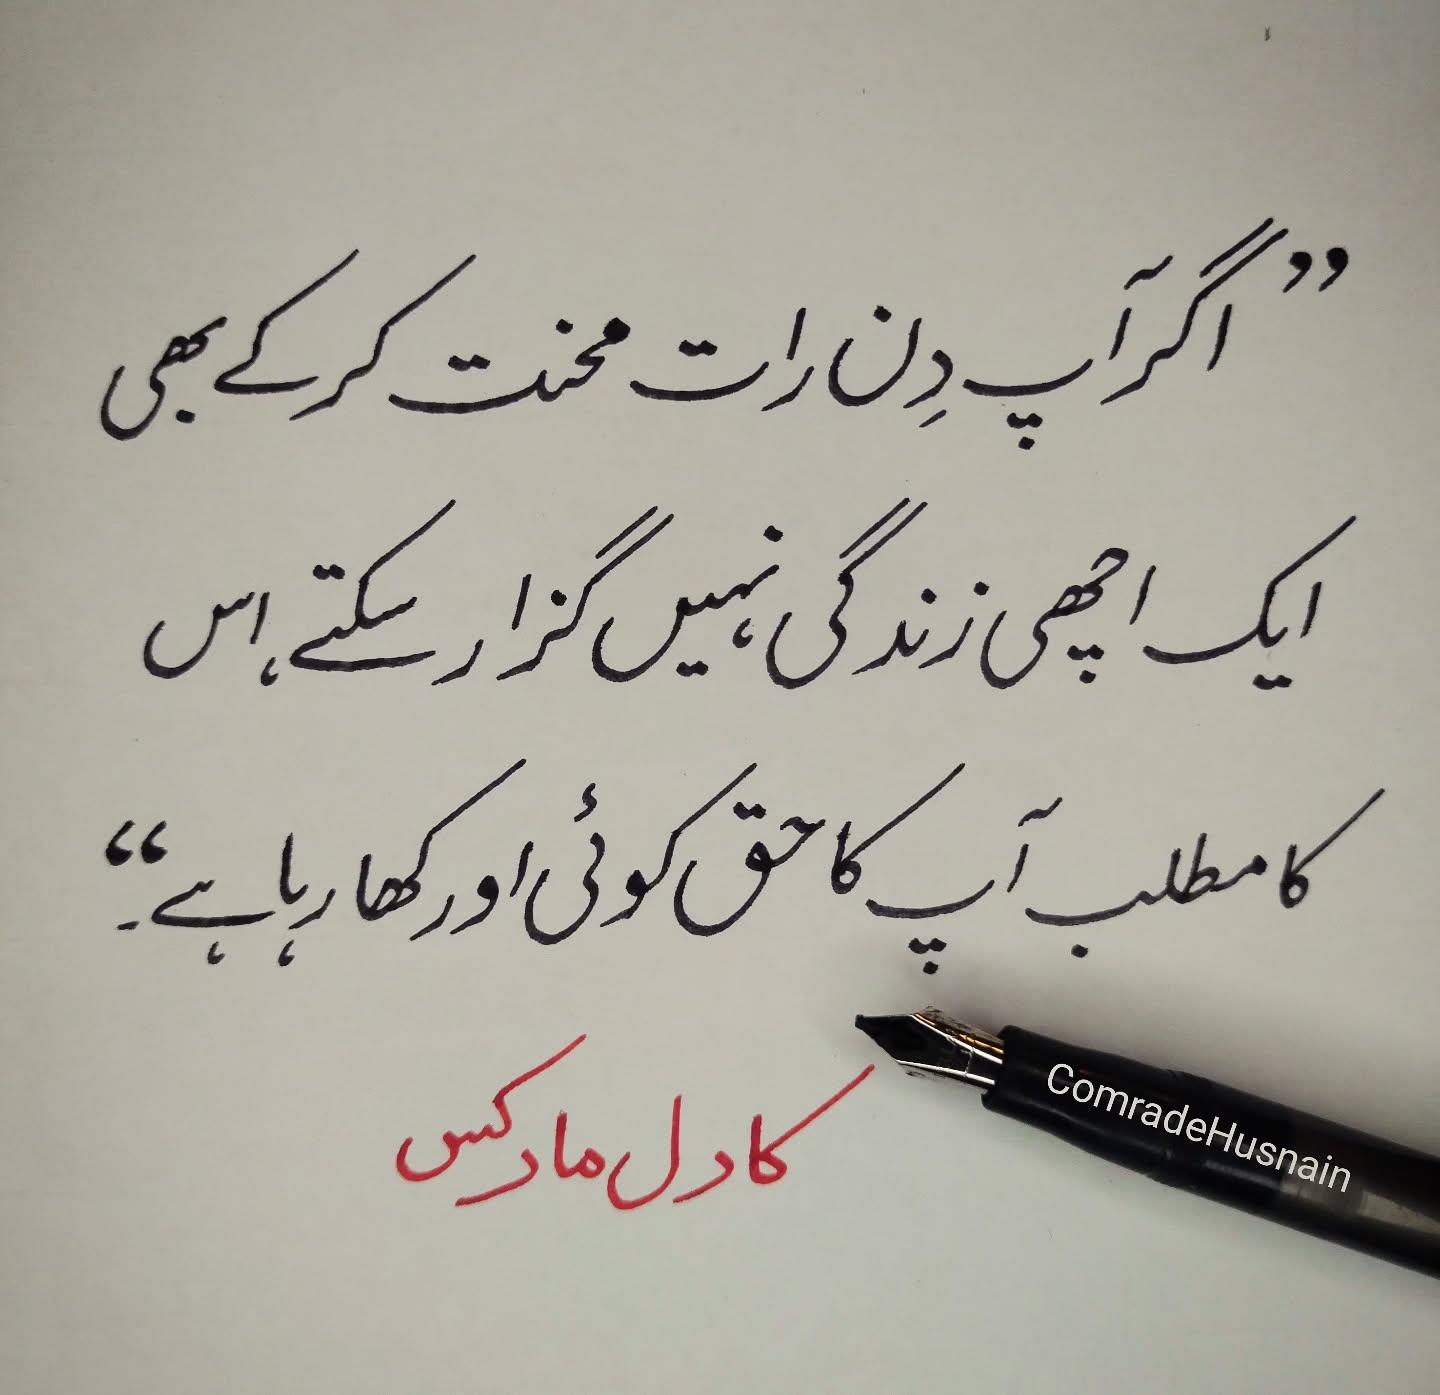 ”اگر آپ دِن رات محنت کر کے بھی
ایک اچھی زندگی نہیں گزار سکتے، اس
کا مطلب آپ کا حق کوئی اور کھا رہا ہے۔“
کارل مارکس
ComradeHusnain